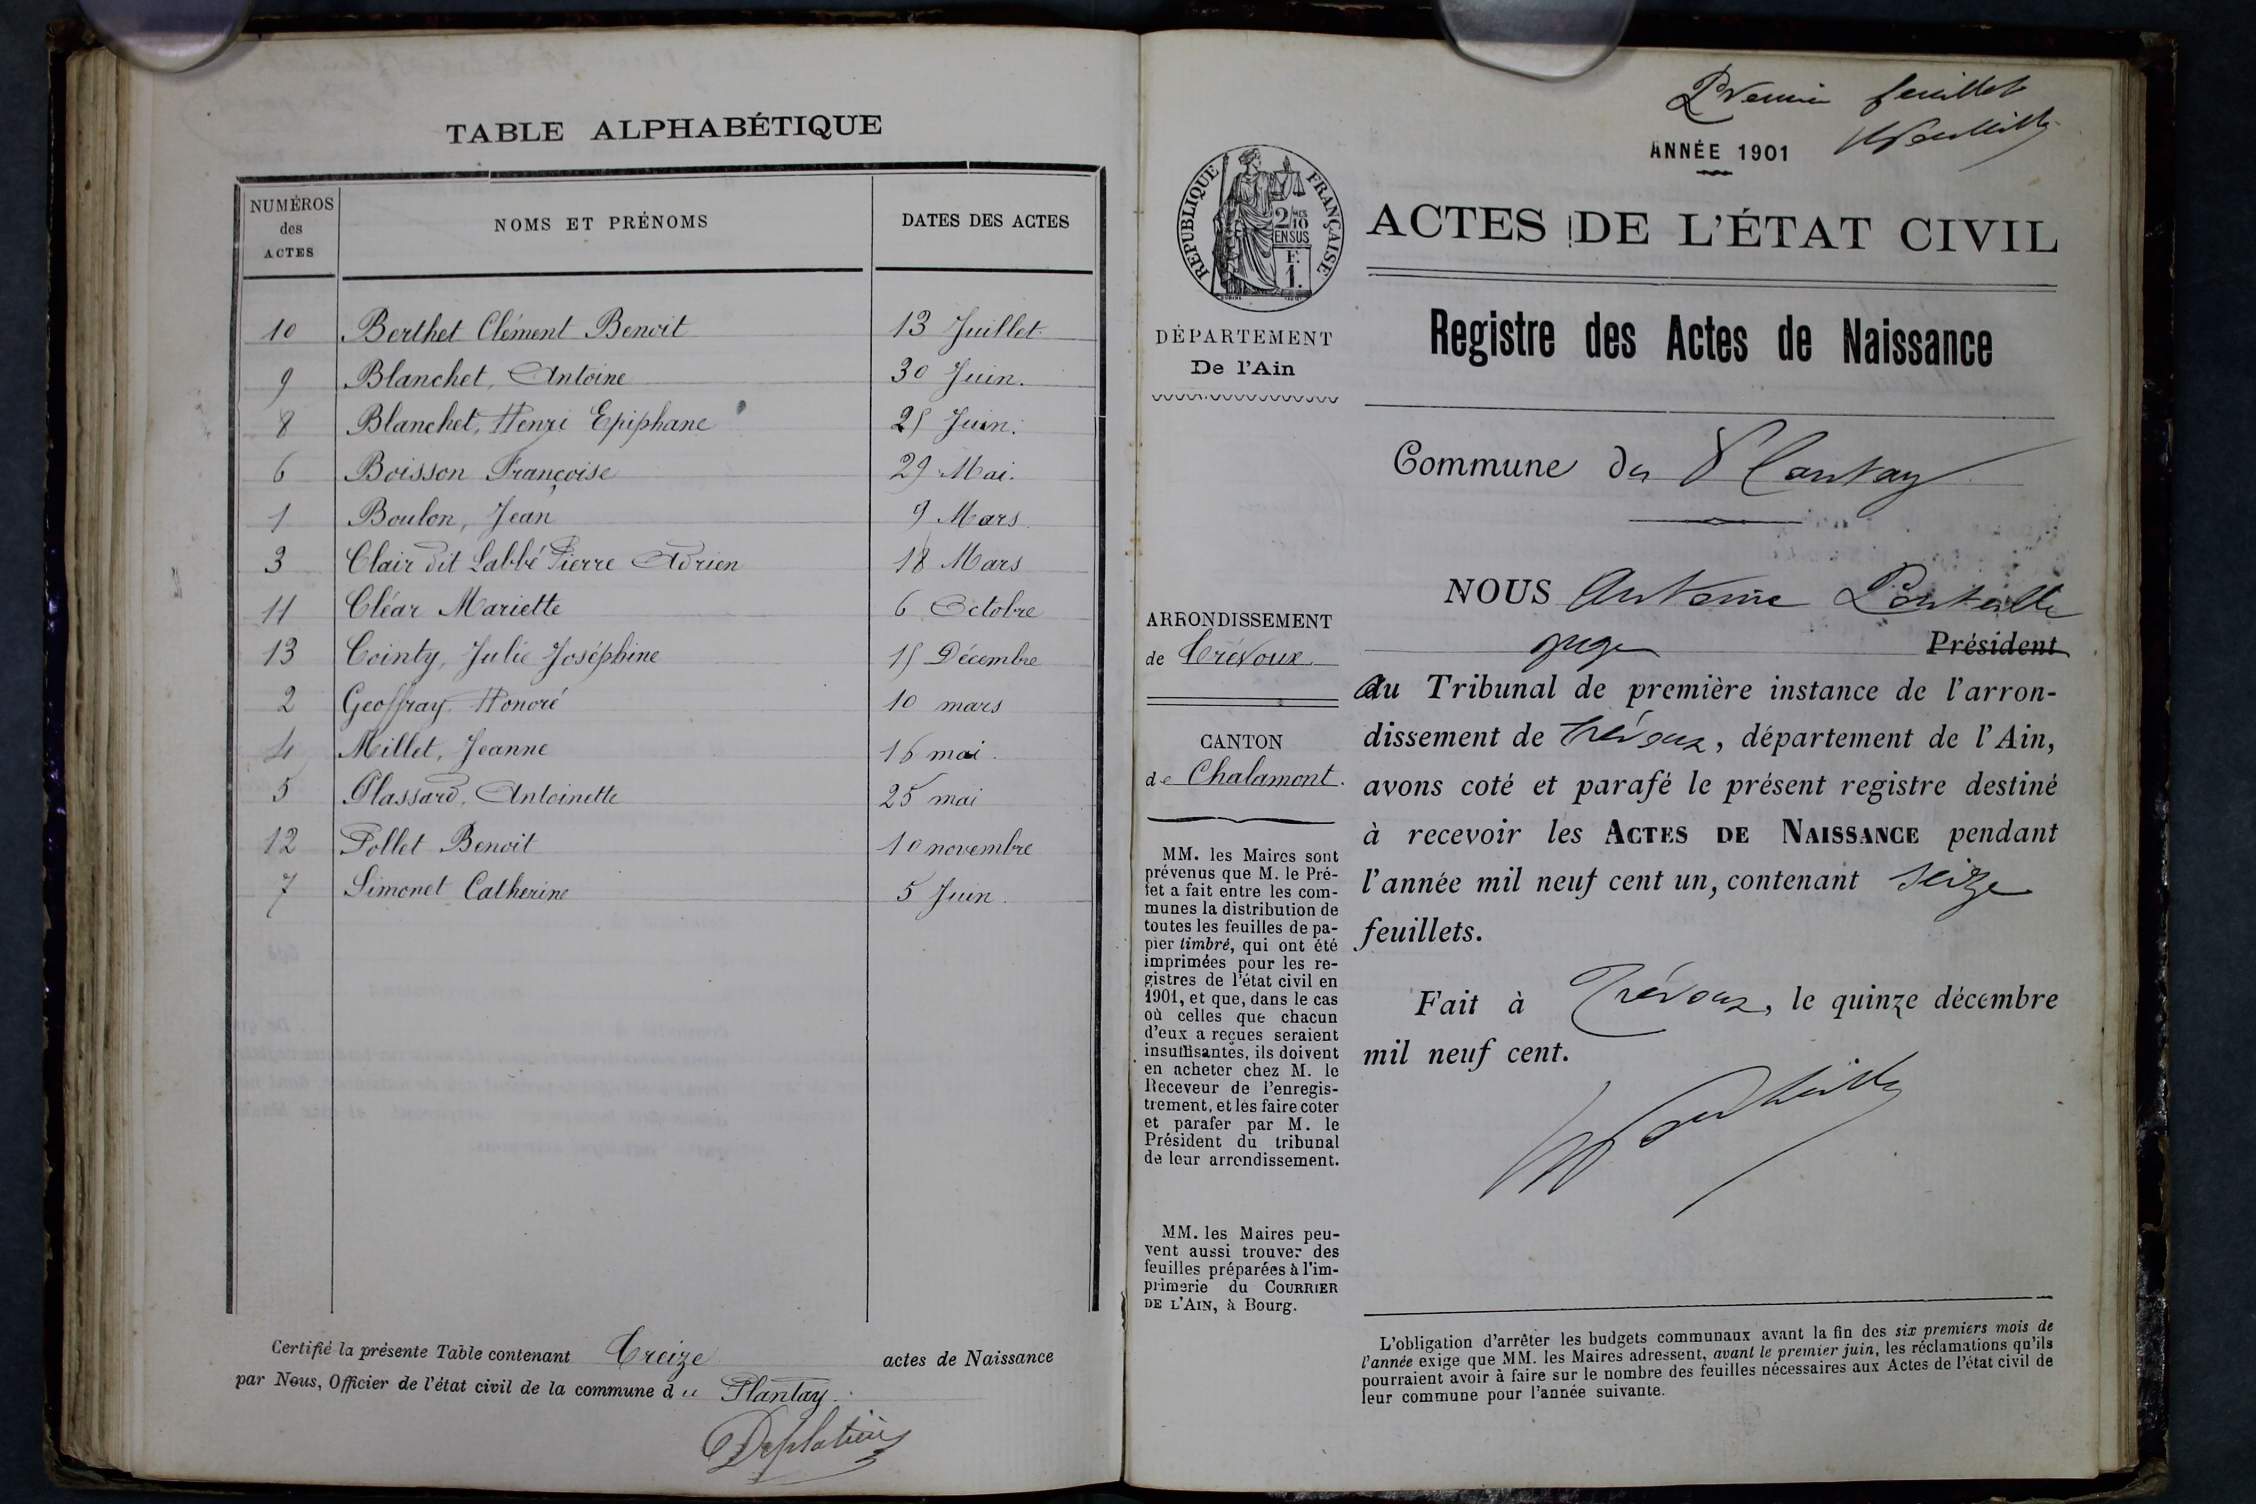 TABLE ALPHABÉTIQUE
NUMÉROS des ACTES NOMS ET PRÉNOMS DATES DES ACTES
10 Berthet Clément Benoit 13 Juillet.
9 Blanchet, Antoine 30 Juin.
8 Blanchet, Henri Epiphane 25 Juin.
6 Boisson Françoise 29 Mai.
1 Boulon, Jean 9 Mars
3 Clair dit Labbé Pierre Adrien 18 Mars
11 Cléar Mariette 6 Octobre
13 Cointy, Julie Joséphine 15 Décembre
2 Geoffray Honoré 10 mars
4 Millet, Jeanne 16 mai.
5 Plassard, Antoinette 25 mai
12 Pollet Benoit 10 novembre
7 Simonet Catherine 5 Juin.
Certifié la présente Table contenant Treize actes de Naissance
par Nous, Officier de l'état civil de la commune du Plantay.
Premier feuillet
ANNÉE 1901
RÉPUBLIQUE FRANÇAISE
2/10 MES
EN SUS
F.
1.
ACTES DE L'ÉTAT CIVIL
DÉPARTEMENT
De l'Ain
Registre des Actes de Naissance
Commune du Plantay
ARRONDISSEMENT
de Trévoux
CANTON
de Chalamont.
MM. les Maires sont
prévenus que M. le Pré-
fet a fait entre les com-
munes la distribution de
toutes les feuilles de pa-
pier timbré, qui ont été
imprimées pour les re-
gistres de l'état civil en
1901, et que, dans le cas
où celles que chacun
d'eux a reçues seraient
insuffisantes, ils doivent
en acheter chez M. le
Receveur de l'enregis-
trement, et les faire coter
et parafer par M. le
Président du tribunal
de leur arrondissement.
MM. les Maires peu-
vent aussi trouver des
feuilles préparées à l'im-
primerie du COURRIER
DE L'AIN, à Bourg.
NOUS Antoine
juge Président
du Tribunal de première instance de l'arron-
dissement de Trévoux, département de l'Ain,
avons coté et parafé le présent registre destiné
à recevoir les ACTES DE NAISSANCE pendant
l'année mil neuf cent un, contenant seize
feuillets.
Fait à Trévoux, le quinze décembre
mil neuf cent.
L'obligation d'arrêter les budgets communaux avant la fin des six premiers mois de
l'année exige que MM. les Maires adressent, avant le premier juin, les réclamations qu'ils
pourraient avoir à faire sur le nombre des feuilles nécessaires aux Actes de l'état civil de
leur commune pour l'année suivante.